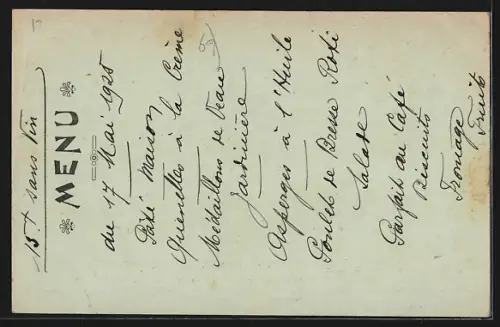 15.+ sans Vin
MENU
du 17 Mai 1928
Pâté Maison
Quenelles à la Crème
Médaillons de Veau
Jardinière
Asperges à l'Huile
Poulet de Bresse Roti
Salade
Parfait au Café
Biscuits
Fromage Fruits